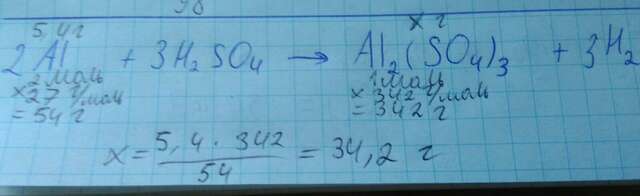 5,4 г х г
2Al + 3H₂SO₄ → Al₂(SO₄)₃ + 3H₂
2 моль 1 моль
× 27 г/моль × 342 г/моль
= 54 г = 342 г
x = 5,4 · 342 / 54 = 34,2 г